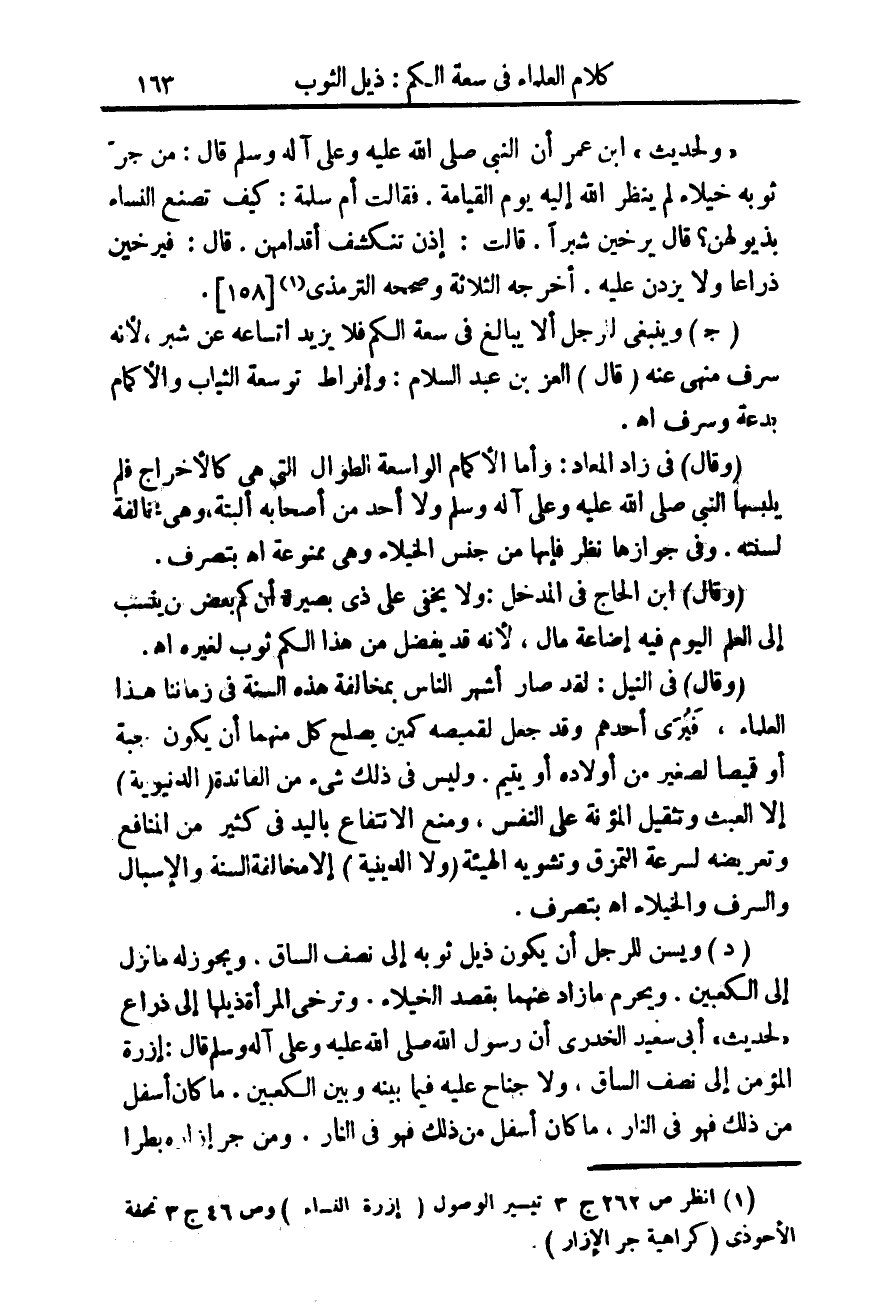 كلام العلماء فى سعة الكم : ذيل الثوب ١٦٣
« ولحديث » ابن عمر أن النبي صلى الله عليه وعلى آله وسلم قال : من جرّ
ثوبه خيلاء لم ينظر الله إليه يوم القيامة . فقالت أم سلمة : كيف تصنع النساء
بذيولهن؟ قال يرخين شبراً . قالت : إذن تنكشف أقدامهن . قال : فيرخين
ذراعا ولا يزدن عليه . أخرجه الثلاثة وصححه الترمذى(١) [١٥٨] .
( ج ) وينبغى لرجل ألا يبالغ فى سعة الكم فلا يزيد اتساعه عن شبر ، لأنه
سرف منهى عنه ( قال ) العز بن عبد السلام : وإفراط توسعة الثياب والأكمام
بدعة وسرف اه .
(وقال) فى زاد المعاد : وأما الأكمام الواسعة الطوال التى هى كالأخراج فلم
يلبسها النبي صلى الله عليه وعلى آله وسلم ولا أحد من أصحابه ألبتة ، وهى مخالفة
لسنته . وفى جوازها نظر فإنها من جنس الخيلاء وهى ممنوعة اه بتصرف .
(وقال) ابن الحاج فى المدخل : ولا يخفى على ذى بصيرة أن كم بعض من ينتسب
إلى العلم اليوم فيه إضاعة مال ، لأنه قد يفضل من هذا الكم ثوب لغيره اه .
(وقال) فى النيل : لقد صار أشهر الناس بمخالفة هذه السنة فى زماننا هذا
العلماء ، فَيُرَى أحدهم وقد جعل لقميصه كمين يصلح كل منهما أن يكون جبة
أو قميصا لصغير من أولاده أو يتيم . وليس فى ذلك شىء من الفائدة ( الدنيوية )
إلا العبث وتثقيل المؤنة على النفس ، ومنع الانتفاع باليد فى كثير من المنافع
وتعريضه لسرعة التمزق وتشويه الهيئة (ولا الدينية ) إلا مخالفة السنة والإسبال
والسرف والخيلاء اه بتصرف .
( د ) ويسن للرجل أن يكون ذيل ثوبه إلى نصف الساق . ويجوز له ما نزل
إلى الكعبين . ويحرم ما زاد عنهما بقصد الخيلاء . وترخى المرأة ذيلها إلى ذراع
« لحديث » أبى سعيد الخدرى أن رسول الله صلى الله عليه وعلى آله وسلم قال : إزرة
المؤمن إلى نصف الساق ، ولا جناح عليه فيما بينه وبين الكعبين . ما كان أسفل
من ذلك فهو فى النار ، ما كان أسفل من ذلك فهو فى النار . ومن جر إزاره بطرا
(١) انظر ص ٢٦٢ ج ٣ تيسير الوصول ( إزرة النساء ) وص ٤٦ ج ٣ تحفة
الأحوذى ( كراهية جر الإزار ) .